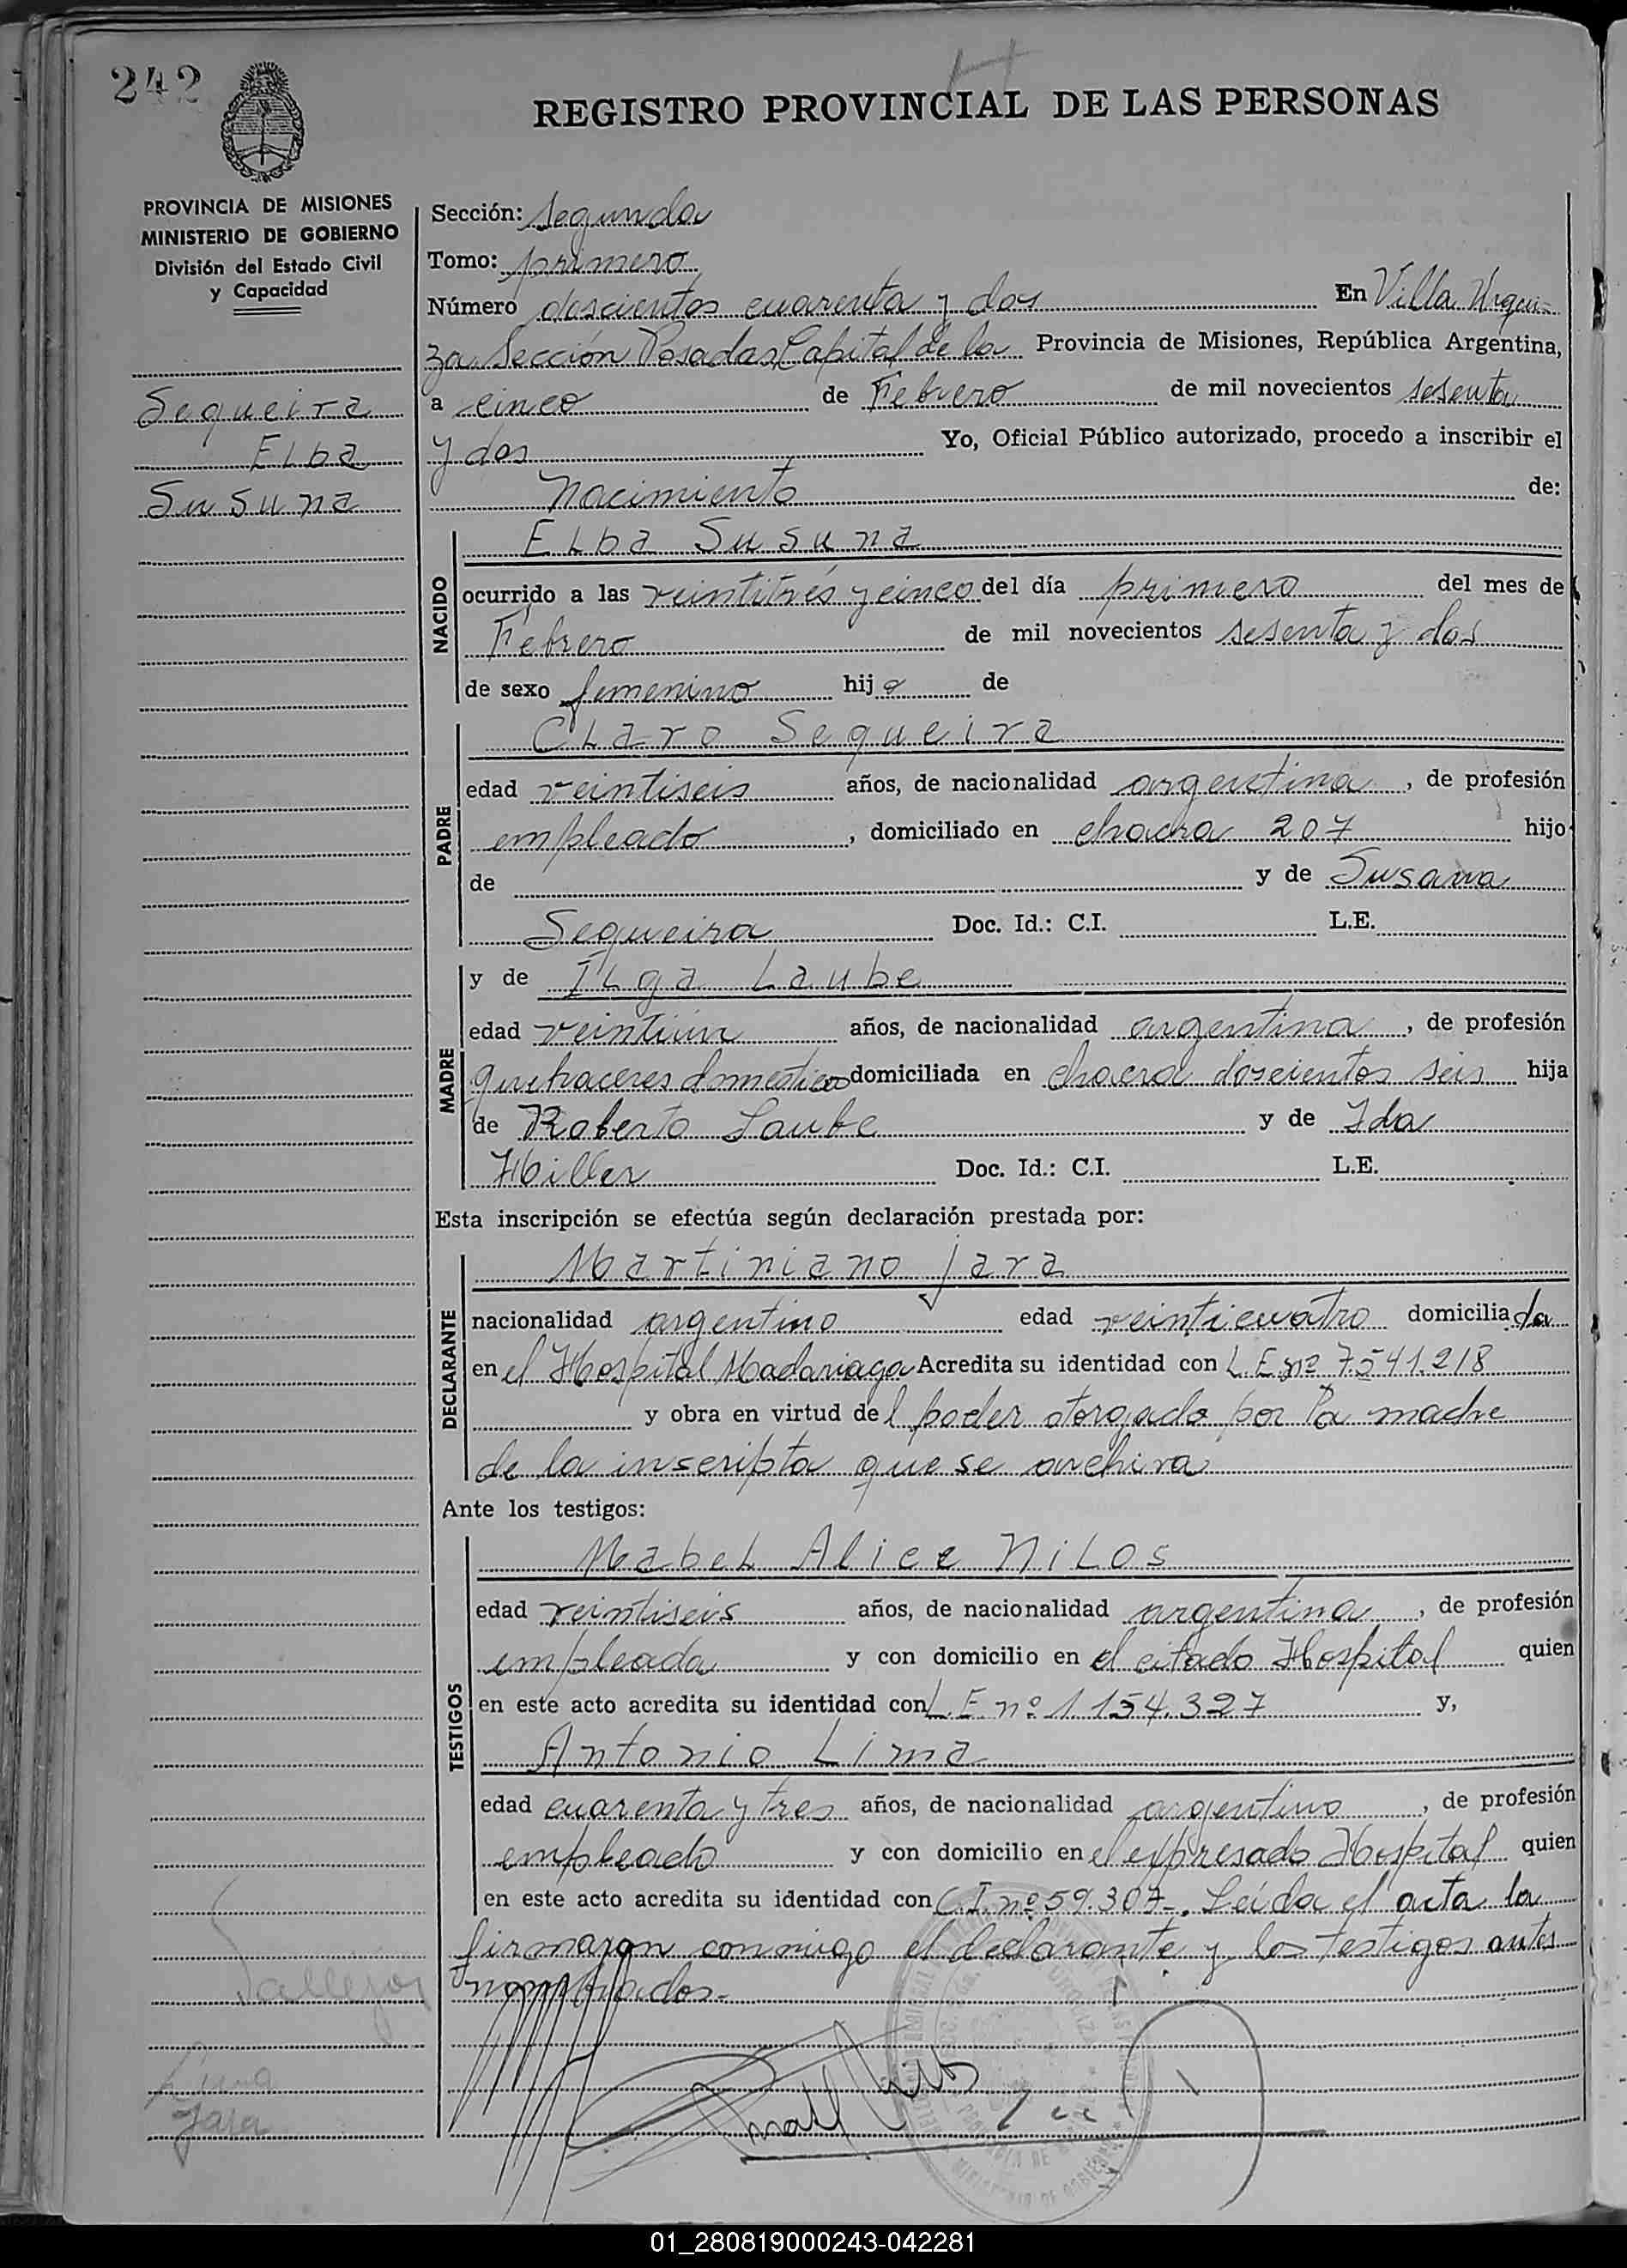 242
REGISTRO PROVINCIAL DE LAS PERSONAS
PROVINCIA DE MISIONES
MINISTERIO DE GOBIERNO
División del Estado Civil
y Capacidad
Sequeira
Elba
Susuna
Sección: segunda
Tomo: primero
Número doscientos cuarenta y dos En Villa Urqui-
za Sección Posadas Capital de la Provincia de Misiones, República Argentina,
a cinco de Febrero de mil novecientos sesenta
y dos Yo, Oficial Público autorizado, procedo a inscribir el
Nacimiento de:
NACIDO
Elba Susuna
ocurrido a las veintitrés y cinco del día primero del mes de
Febrero de mil novecientos sesenta y dos
de sexo femenino hija de
PADRE
Claro Sequeira
edad veintiseis años, de nacionalidad argentina, de profesión
empleado, domiciliado en chacra 207 hijo
de y de Susana
Sequeira Doc. Id.: C.I. L.E.
MADRE
y de Ilga Laube
edad veintiún años, de nacionalidad argentina, de profesión
quehaceres domesticos domiciliada en chacra doscientos seis hija
de Roberto Laube y de Ida
Hiller Doc. Id.: C.I. L.E.
Esta inscripción se efectúa según declaración prestada por:
DECLARANTE
Martiniano Jara
nacionalidad argentino edad veinticuatro domiciliado
en el Hospital Madariaga Acredita su identidad con L.E. nº 7.541.218
y obra en virtud del poder otorgado por la madre
de la inscripta que se archiva
Ante los testigos:
TESTIGOS
Mabel Alice Nilos
edad veintiseis años, de nacionalidad argentina, de profesión
empleada y con domicilio en el citado Hospital quien
en este acto acredita su identidad con L.E. nº 1.154.327 y,
Antonio Lima
edad cuarenta y tres años, de nacionalidad argentino, de profesión
empleado y con domicilio en el expresado Hospital quien
en este acto acredita su identidad con C.I. nº 59.307-. Leída el acta la
firmaron conmigo el declarante y los testigos antes
nombrados.-
Vallejos
Lima
Jara
01_280819000243-042281